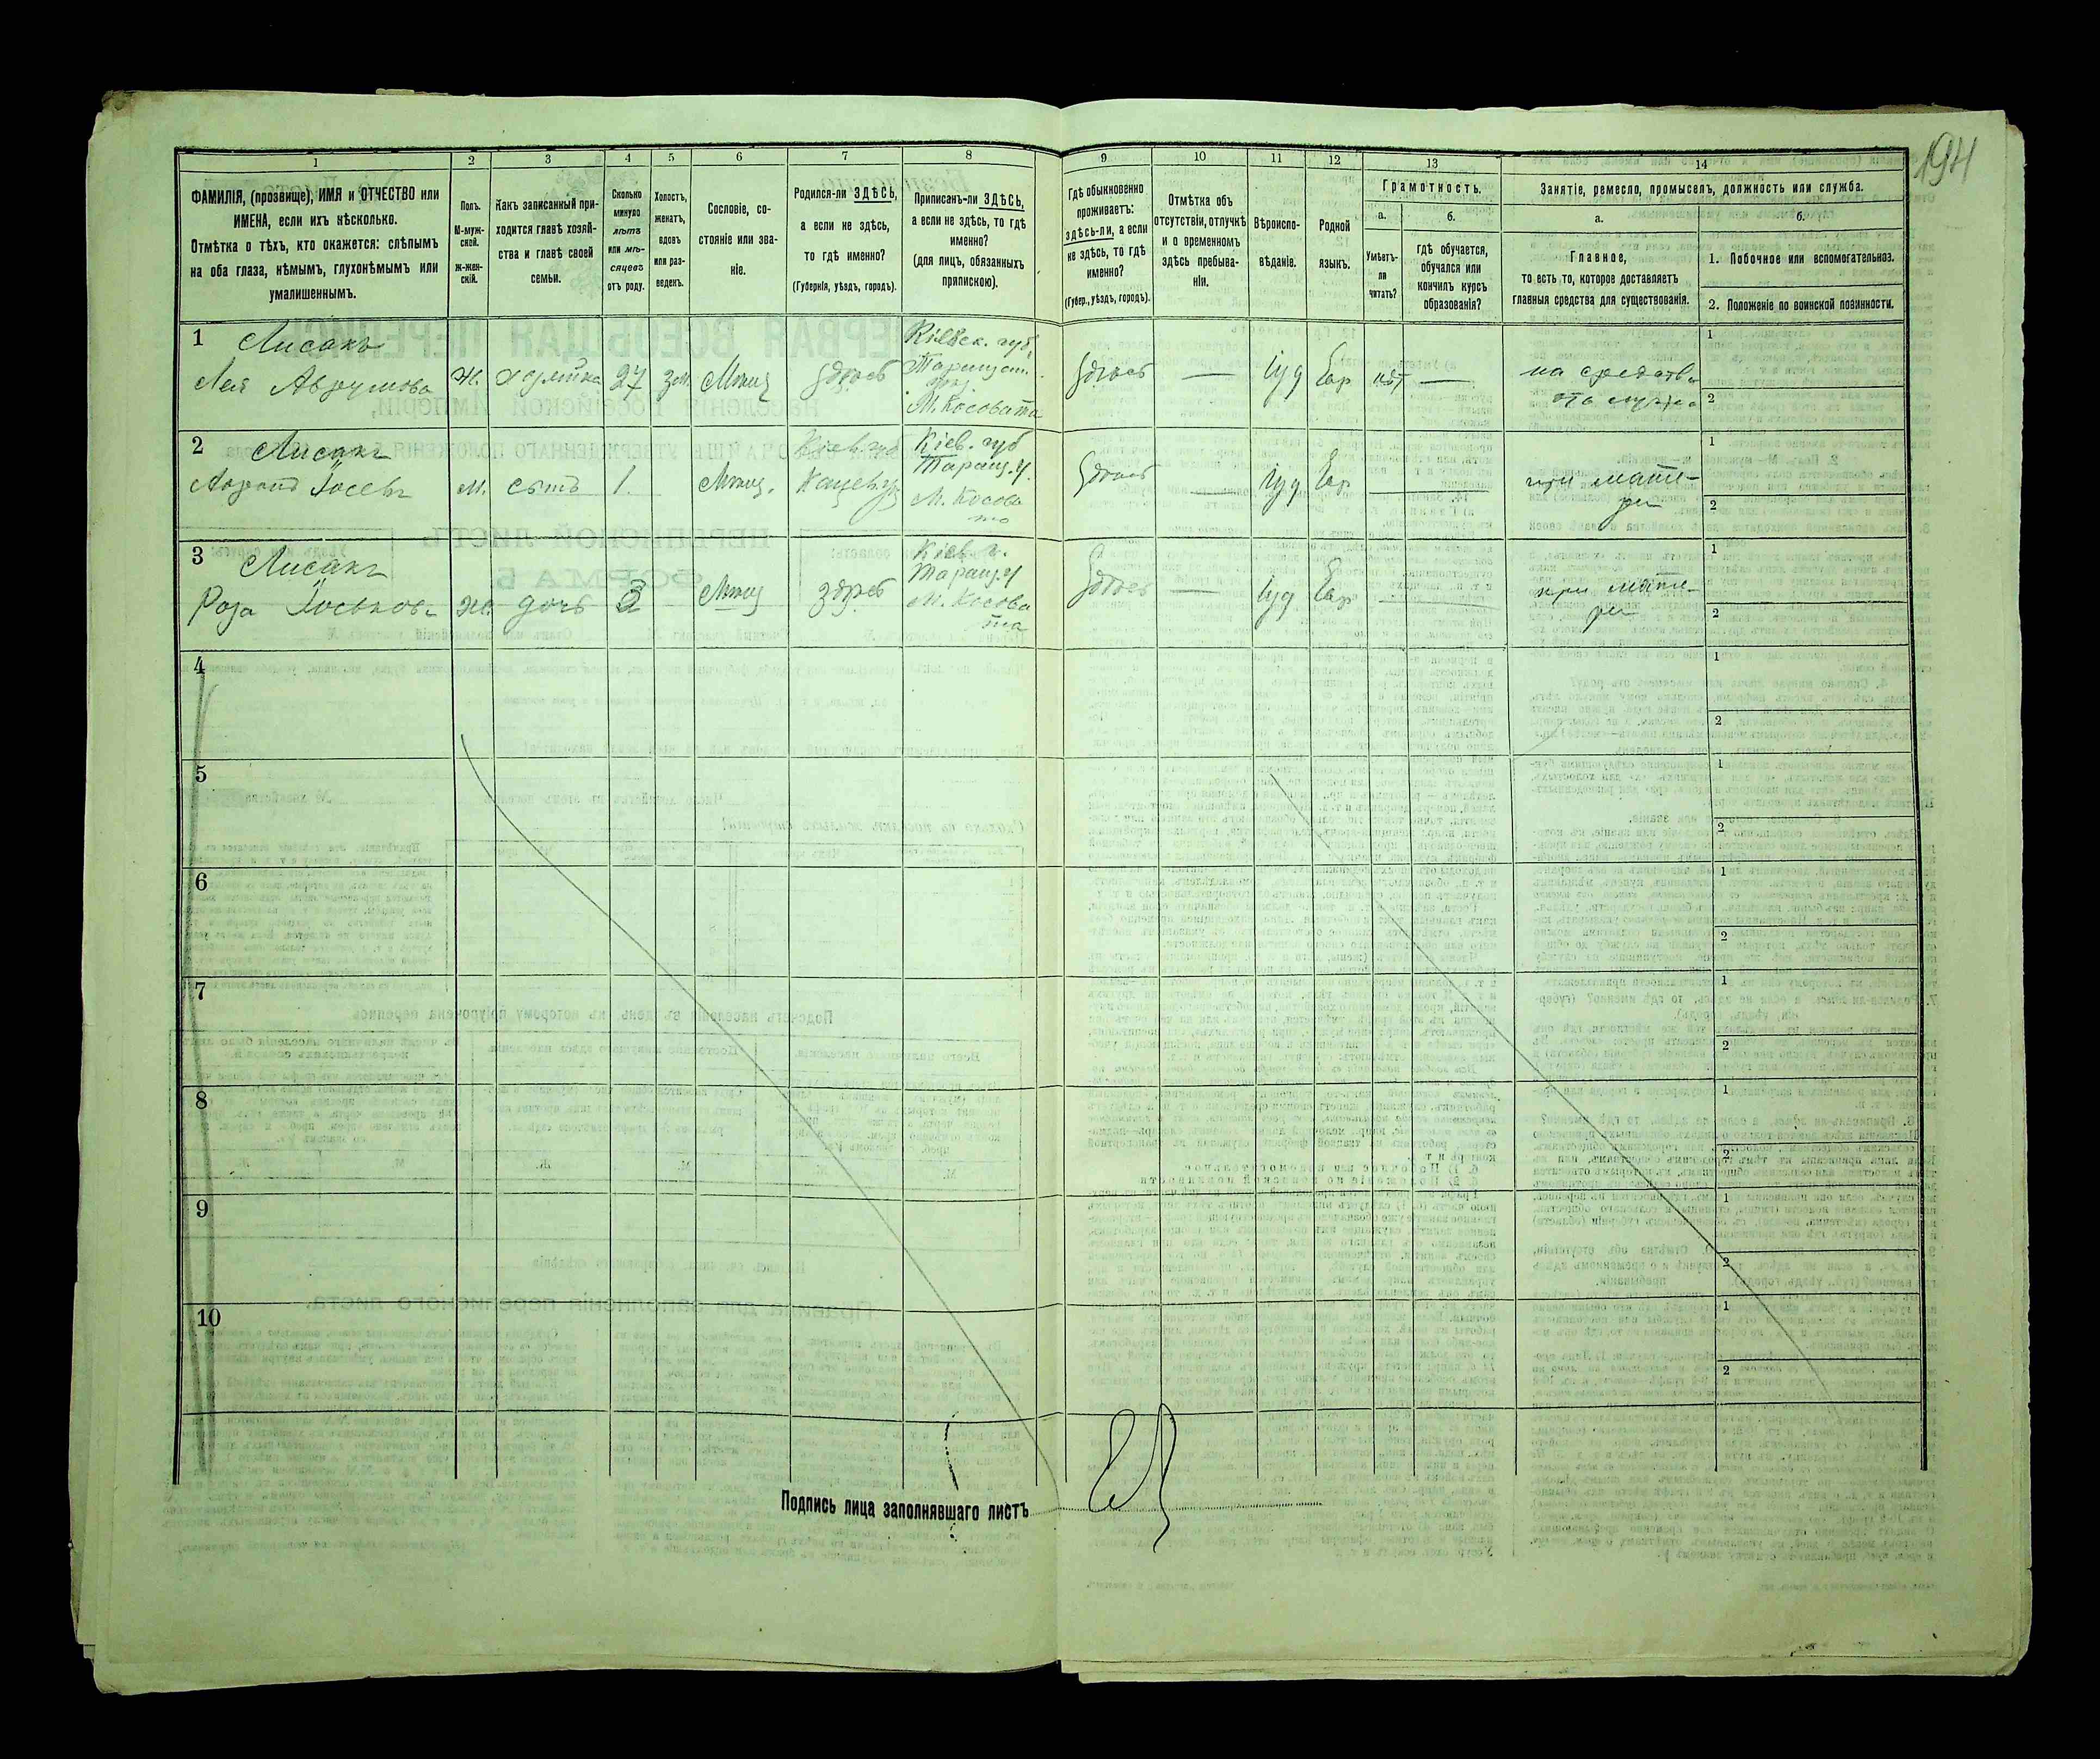 194
1 2 3 4 5 6 7 8 9 10 11 12 13 14
ФАМИЛІЯ, (прозвище), ИМЯ и ОТЧЕСТВО или
ИМЕНА, если ихъ нѣсколько.
Отмѣтка о тѣхъ, кто окажется: слѣпымъ
на оба глаза, нѣмымъ, глухонѣмымъ или
умалишеннымъ.
Полъ.
М-муж-
ской.
Ж-жен-
скій.
Какъ записанный при-
ходится главѣ хозяй-
ства и главѣ своей
семьи.
Сколько
минуло
лѣтъ
или мѣ-
сяцевъ
отъ роду.
Холостъ,
женатъ,
вдовъ
или раз-
веденъ.
Сословіе, со-
стояніе или зва-
ніе.
Родился-ли ЗДѢСЬ,
а если не здѣсь,
то гдѣ именно?
(Губернія, уѣздъ, городъ).
Приписанъ-ли ЗДѢСЬ,
а если не здѣсь, то гдѣ
именно?
(для лицъ, обязанныхъ
припискою).
Гдѣ обыкновенно
проживаетъ:
здѣсь-ли, а если
не здѣсь, то гдѣ
именно?
(Губер., уѣздъ, городъ).
Отмѣтка объ
отсутствіи, отлучкѣ
и о временномъ
здѣсь пребыва-
ніи.
Вѣроиспо-
вѣданіе.
Родной
языкъ.
Грамотность.
а.
Умѣетъ-
ли
читать?
б.
Гдѣ обучается,
обучался или
кончилъ курсъ
образованія?
Занятіе, ремесло, промыселъ, должность или служба.
а.
Главное,
то есть то, которое доставляетъ
главныя средства для существованія.
б.
1. Побочное или вспомогательное.
2. Положеніе по воинской повинности.
1 Лисакъ
Лея Аврумова Ж. хозяйка 27 зм. Мѣщ здѣсь
Кіевск. губ.
Таращан.
уѣз.
М. Косовата
Здѣсь — Іуд Евр нѣт —
на средства
отъ мужа
1
2
2 Лисакъ
Іосев М. сынъ 1. Мѣщ.
Кіев. губ
Кіев. губ
Таращ. у.
М. Косова
та
Здѣсь — Іуд Евр —
при мате-
ри
1
2
3 Лисакъ
Роза Іоськова Ж. дочь 3 Мѣщ здѣсь
Кіев. г.
Таращ. у
М. Косова
та
Здѣсь — Іуд Евр —
при мате-
ри
1
2
4 1
2
5 1
2
6 1
2
7 1
2
8 1
2
9 1
2
10 1
2
Подпись лица заполнявшаго листъ